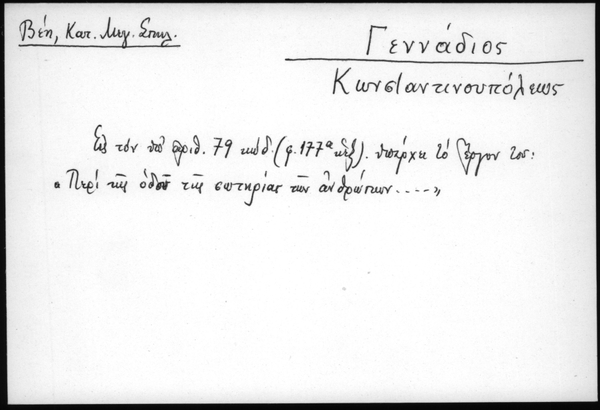 Βέη, Κατ. Μεγ. Σπηλ.
Γεννάδιος
Κωνσταντινουπόλεως
Εἰς τόν ὑπ' ἀριθ. 79 κώδ. (φ. 177α κἑξ). ὑπάρχει τό ἔργον του:
«Περί τῆς ὁδοῦ τῆς σωτηρίας τῶν ἀνθρώπων.....»